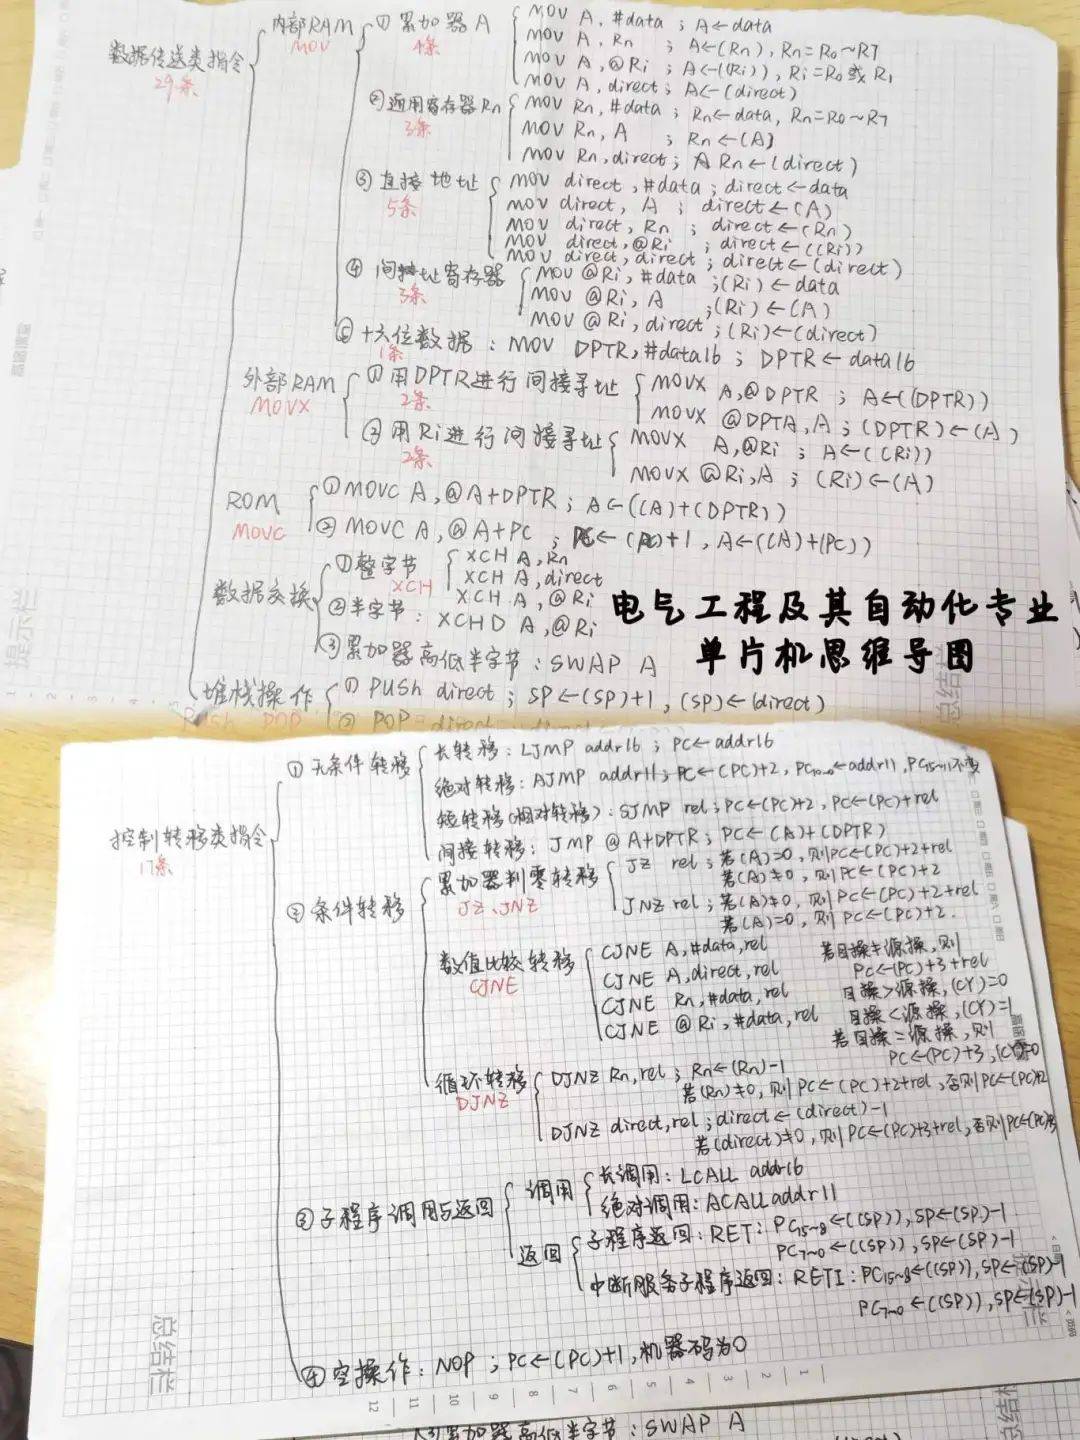 数据传送类指令
29条
内部RAM
MOV
① 累加器A
4条
MOV A, #data ; A←data
MOV A, Rn ; A←(Rn), Rn=R0~R7
MOV A, @Ri ; A←((Ri)), Ri=R0或R1
MOV A, direct ; A←(direct)
② 通用寄存器Rn
3条
MOV Rn, #data ; Rn←data, Rn=R0~R7
MOV Rn, A ; Rn←(A)
MOV Rn, direct ; Rn←(direct)
③ 直接地址
5条
MOV direct, #data ; direct←data
MOV direct, A ; direct←(A)
MOV direct, Rn ; direct←(Rn)
MOV direct, @Ri ; direct←((Ri))
MOV direct, direct ; direct←(direct)
④ 间址寄存器
3条
MOV @Ri, #data ; (Ri)←data
MOV @Ri, A ; (Ri)←(A)
MOV @Ri, direct ; (Ri)←(direct)
⑤ 十六位数据 : MOV DPTR, #data16 ; DPTR←data16
1条
外部RAM
MOVX
① 用DPTR进行间接寻址
2条
MOVX A, @DPTR ; A←((DPTR))
MOVX @DPTA, A ; (DPTR)←(A)
② 用Ri进行间接寻址
2条
MOVX A, @Ri ; A←((Ri))
MOVX @Ri, A ; (Ri)←(A)
ROM
MOVC
① MOVC A, @A+DPTR ; A←((A)+(DPTR))
② MOVC A, @A+PC ; PC←(PC)+1, A←((A)+(PC))
数据交换
① 整字节
XCH
XCH A, Rn
XCH A, direct
XCH A, @Ri
② 半字节 : XCHD A, @Ri
③ 累加器高低半字节 : SWAP A
电气工程及其自动化专业
单片机思维导图
堆栈操作
① PUSh direct ; SP←(SP)+1, (SP)←(direct)
② POP direct
提示栏
总结
控制转移类指令
17条
① 无条件转移
长转移 : LJMP addr16 ; PC←addr16
绝对转移 : AJMP addr11 ; PC←(PC)+2, PC10~0←addr11, PC15~11不变
短转移(相对转移) : SJMP rel ; PC←(PC)+2, PC←(PC)+rel
间接转移 : JMP @A+DPTR ; PC←(A)+(DPTR)
② 条件转移
累加器判零转移
JZ、JNZ
JZ rel ; 若(A)=0, 则PC←(PC)+2+rel
若(A)≠0, 则PC←(PC)+2
JNZ rel ; 若(A)≠0, 则PC←(PC)+2+rel
若(A)=0, 则PC←(PC)+2.
数值比较转移
CJNE
CJNE A, #data, rel
CJNE A, direct, rel
CJNE Rn, #data, rel
CJNE @Ri, #data, rel
若目操≠源操, 则
PC←(PC)+3+rel
目操>源操, (CY)=0
目操<源操, (CY)=1
若目操=源操, 则
PC←(PC)+3, (CY)=0
循环转移
DJNZ
DJNZ Rn, rel ; Rn←(Rn)-1
若(Rn)≠0, 则PC←(PC)+2+rel, 否则PC←(PC)+2
DJNZ direct, rel ; direct←(direct)-1
若(direct)≠0, 则PC←(PC)+3+rel, 否则PC←(PC)+3
③ 子程序调用与返回
调用
长调用 : LCALL addr16
绝对调用 : ACALL addr11
返回
子程序返回 : RET : PC15~8←((SP)), SP←(SP)-1
PC7~0←((SP)), SP←(SP)-1
中断服务子程序返回 : RETI : PC15~8←((SP)), SP←(SP)-1
PC7~0←((SP)), SP←(SP)-1
④ 空操作 : NOP ; PC←(PC)+1, 机器码为0
总结栏
12 11 10 9 8 7 6 5 4 3 2 1
③累加器高低半字节 : SWAP A